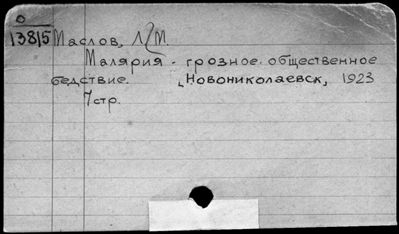 0
13815 Маслов, Л.М.
Малярия - грозное общественное
бедствие. Новониколаевск, 1923
7стр.